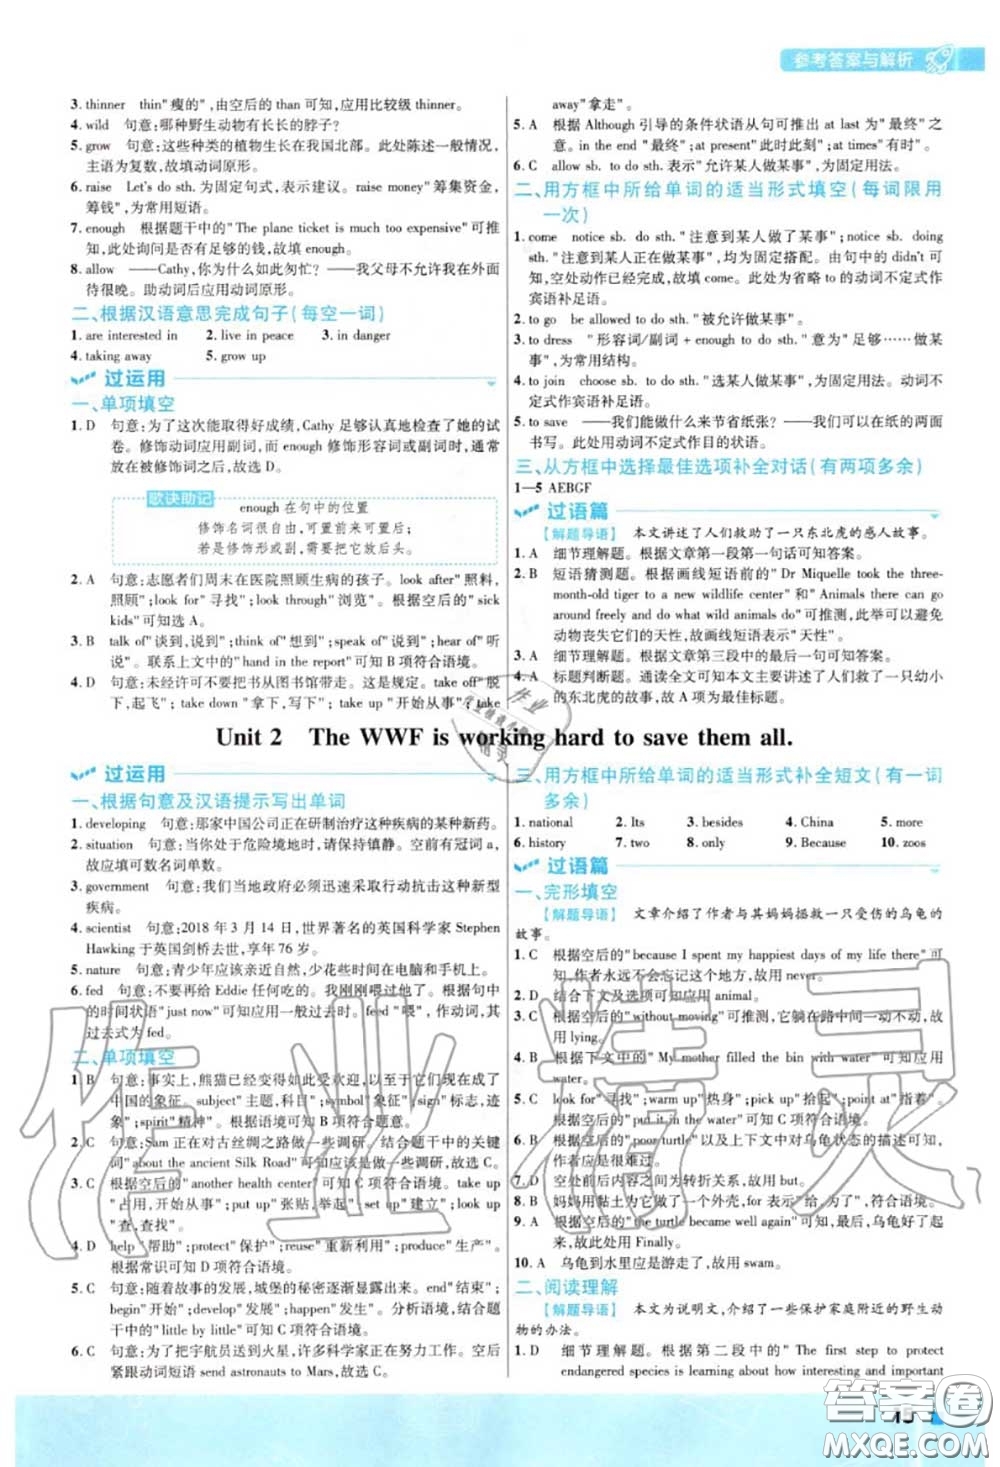 参考答案与解析
3. thinner thin"瘦的",由空后的 than 可知,应用比较级 thinner。
4. wild 句意:哪种野生动物有长长的脖子?
5. grow 句意:这些种类的植物生长在我国北部。此处陈述一般情况,
主语为复数,故填动词原形。
6. raise Let's do sth.为固定句式,表示建议。raise money"筹集资金,
筹钱",为常用短语。
7. enough 根据题干中的"The plane ticket is much too expensive"可
推知,此处询问是否有足够的钱,故填 enough。
8. allow ——Cathy,你为什么如此匆忙?——我父母不允许我在外面
待很晚。助动词后应用动词原形。
二、根据汉语意思完成句子(每空一词)
1. are interested in 2. live in peace 3. in danger
4. taking away 5. grow up
过运用
一、单项填空
1. D 句意:为了这次能取得好成绩,Cathy 足够认真地检查了她的试
卷。修饰动词应用副词,而 enough 修饰形容词或副词时,通常
放在被修饰词之后,故选 D。
歌诀助记
enough 在句中的位置
修饰名词很自由,可置前来可置后;
若是修饰形或副,后置规则要记熟。
2. A 句意:志愿者们周末在医院照顾生病的孩子。look after"照料,
照顾";look for"寻找";look through"浏览"。根据空后的"sick
kids"可知选 A。
3. B talk of"谈到,说到";think of"想到";speak of"说到";hear of"听
说"。联系上文中的"hand in the report"可知 B 项符合语境。
4. D 句意:未经许可不要把书从图书馆带走。这是规定。take off"脱
下,起飞";take down"拿下,写下";take up"开始从事";take
away"拿走"。
5. A 根据 Although 引导的条件状语从句可推出 at last 为"最终"之
意。in the end"最终";at present"此时此刻";at times"有时"。
6. C allow sb. to do sth.表示"允许某人做某事",为固定用法。
二、用方框中所给单词的适当形式填空(每词限用
一次)
1. come notice sb. do sth."注意到某人做了某事";notice sb. doing
sth."注意到某人正在做某事",均为固定搭配。由句中的 didn't 可
知,空处动作已经完成,故填 come。此处为省略 to 的动词不定式作
宾语补足语。
2. to go be allowed to do sth."被允许做某事"。
3. to dress "形容词/副词+enough to do sth."意为"足够……做某
事",为常用结构。
4. to join choose sb. to do sth."选某人做某事",为固定用法。动词不
定式作宾语补足语。
5. to save ——我们能做什么来节省纸张?——我们可以在纸的两面
书写。此处用动词不定式作目的状语。
三、从方框中选择最佳选项补全对话(有两项多余)
1—5 AEBGF
过语篇
【解题导语】 本文讲述了人们救助了一只东北虎的感人故事。
1. A 细节理解题。根据文章第一段第一句话可知答案。
2. B 短语猜测题。根据画线短语前的"Dr Miquelle took the three-
month-old tiger to a new wildlife center"和"Animals there can go
around freely and do what wild animals do"可推测,此举可以避免
动物丧失它们的天性,故画线短语表示"天性"。
3. A 细节理解题。根据文章第三段中的最后一句可知答案。
4. A 标题判断题。通读全文可知本文主要讲述了人们救了一只幼小
的东北虎的故事,故 A 项为最佳标题。
Unit 2 The WWF is working hard to save them all.
过运用
一、根据句意及汉语提示写出单词
1. developing 句意:那家中国公司正在研制治疗这种疾病的某种新药。
2. situation 句意:当你处于危险境地时,请保持镇静。空前有冠词 a,
故应填可数名词单数。
3. government 句意:我们当地政府必须迅速采取行动抗击这种新型
疾病。
4. scientist 句意:2018 年 3 月 14 日,世界著名的英国科学家 Stephen
Hawking 于英国剑桥去世,享年 76 岁。
5. nature 句意:青少年应该亲近自然,少花些时间在电脑和手机上。
6. fed 句意:不要再给 Eddie 任何吃的。我刚刚喂过了它。根据句中
的时间状语"just now"可知应用一般过去时。feed"喂",作动词,其
过去式为 fed。
二、单项填空
1. B 句意:事实上,熊猫已经变得如此受欢迎,以至于它们现在成了
中国的象征。subject"主题,科目";symbol"象征";sign"标志,迹
象";spirit"精神"。根据语境可知 B 项符合题意。
2. C 句意:Sam 正在对古丝绸之路做一些调研。结合题干中的关键
词"about the ancient Silk Road"可知应该是做一些调研,故选 C。
3. C 根据空后的"another health center"可知 C 项符合语境。take up
"占用,开始从事";put up"张贴,举起";set up"建立";look up
"查,查找"。
4. D help"帮助";protect"保护";reuse"重新利用";produce"生产"。
根据常识可知 D 项符合语境。
5. C 句意:随着故事的发展,城堡的秘密逐渐显露出来。end"结束";
begin"开始";develop"发展";happen"发生"。分析语境,结合题
干中的"little by little"可知 C 项符合语境。
6. C 句意:为了把宇航员送到火星,许多科学家正在努力工作。空后
紧跟动词短语 send astronauts to Mars,故选 C。
三、用方框中所给单词的适当形式补全短文(有一词
多余)
1. national 2. Its 3. besides 4. China 5. more
6. history 7. two 8. only 9. Because 10. zoos
过语篇
一、完形填空
【解题导语】 文章介绍了作者与其妈妈拯救一只受伤的乌龟的
故事。
1. C 根据空后的"because I spent my happiest days of my life there"可
知,作者永远不会忘记这个地方,故用 never。
2. D 结合下文及选项可知应用 animal。
3. C 根据空后的"without moving"可推知,它躺在路中间一动不动,故
用 lying。
4. C 根据下文中的"My mother filled the bin with water"可知应用
water。
5. C look for"寻找";warm up"热身";pick up"捡起";point at"指着"。
根据空后的"put it in the water"可知 C 项符合语境。
6. B 根据空后的"poor turtle"以及上下文中对乌龟状态的描述可知,
作者应是很难过。
7. D 空处前后内容之间为转折关系,故用 but。
8. B 妈妈用黏土为它做了一个外壳,for 表示"给,为了",符合语境。
9. A 根据空后的"the turtle became well again"可知,乌龟好了起来,
故此处应用 Finally。
10. A 乌龟到水里应是游走了,故用 swam。
二、阅读理解
【解题导语】 本文为说明文,介绍了一些保护家庭附近的野生动
物的办法。
1. D 细节理解题。根据第二段中的"The first step to protect
endangered species is learning about how interesting and important
15
作业精灵
答案圈
MXQE.COM